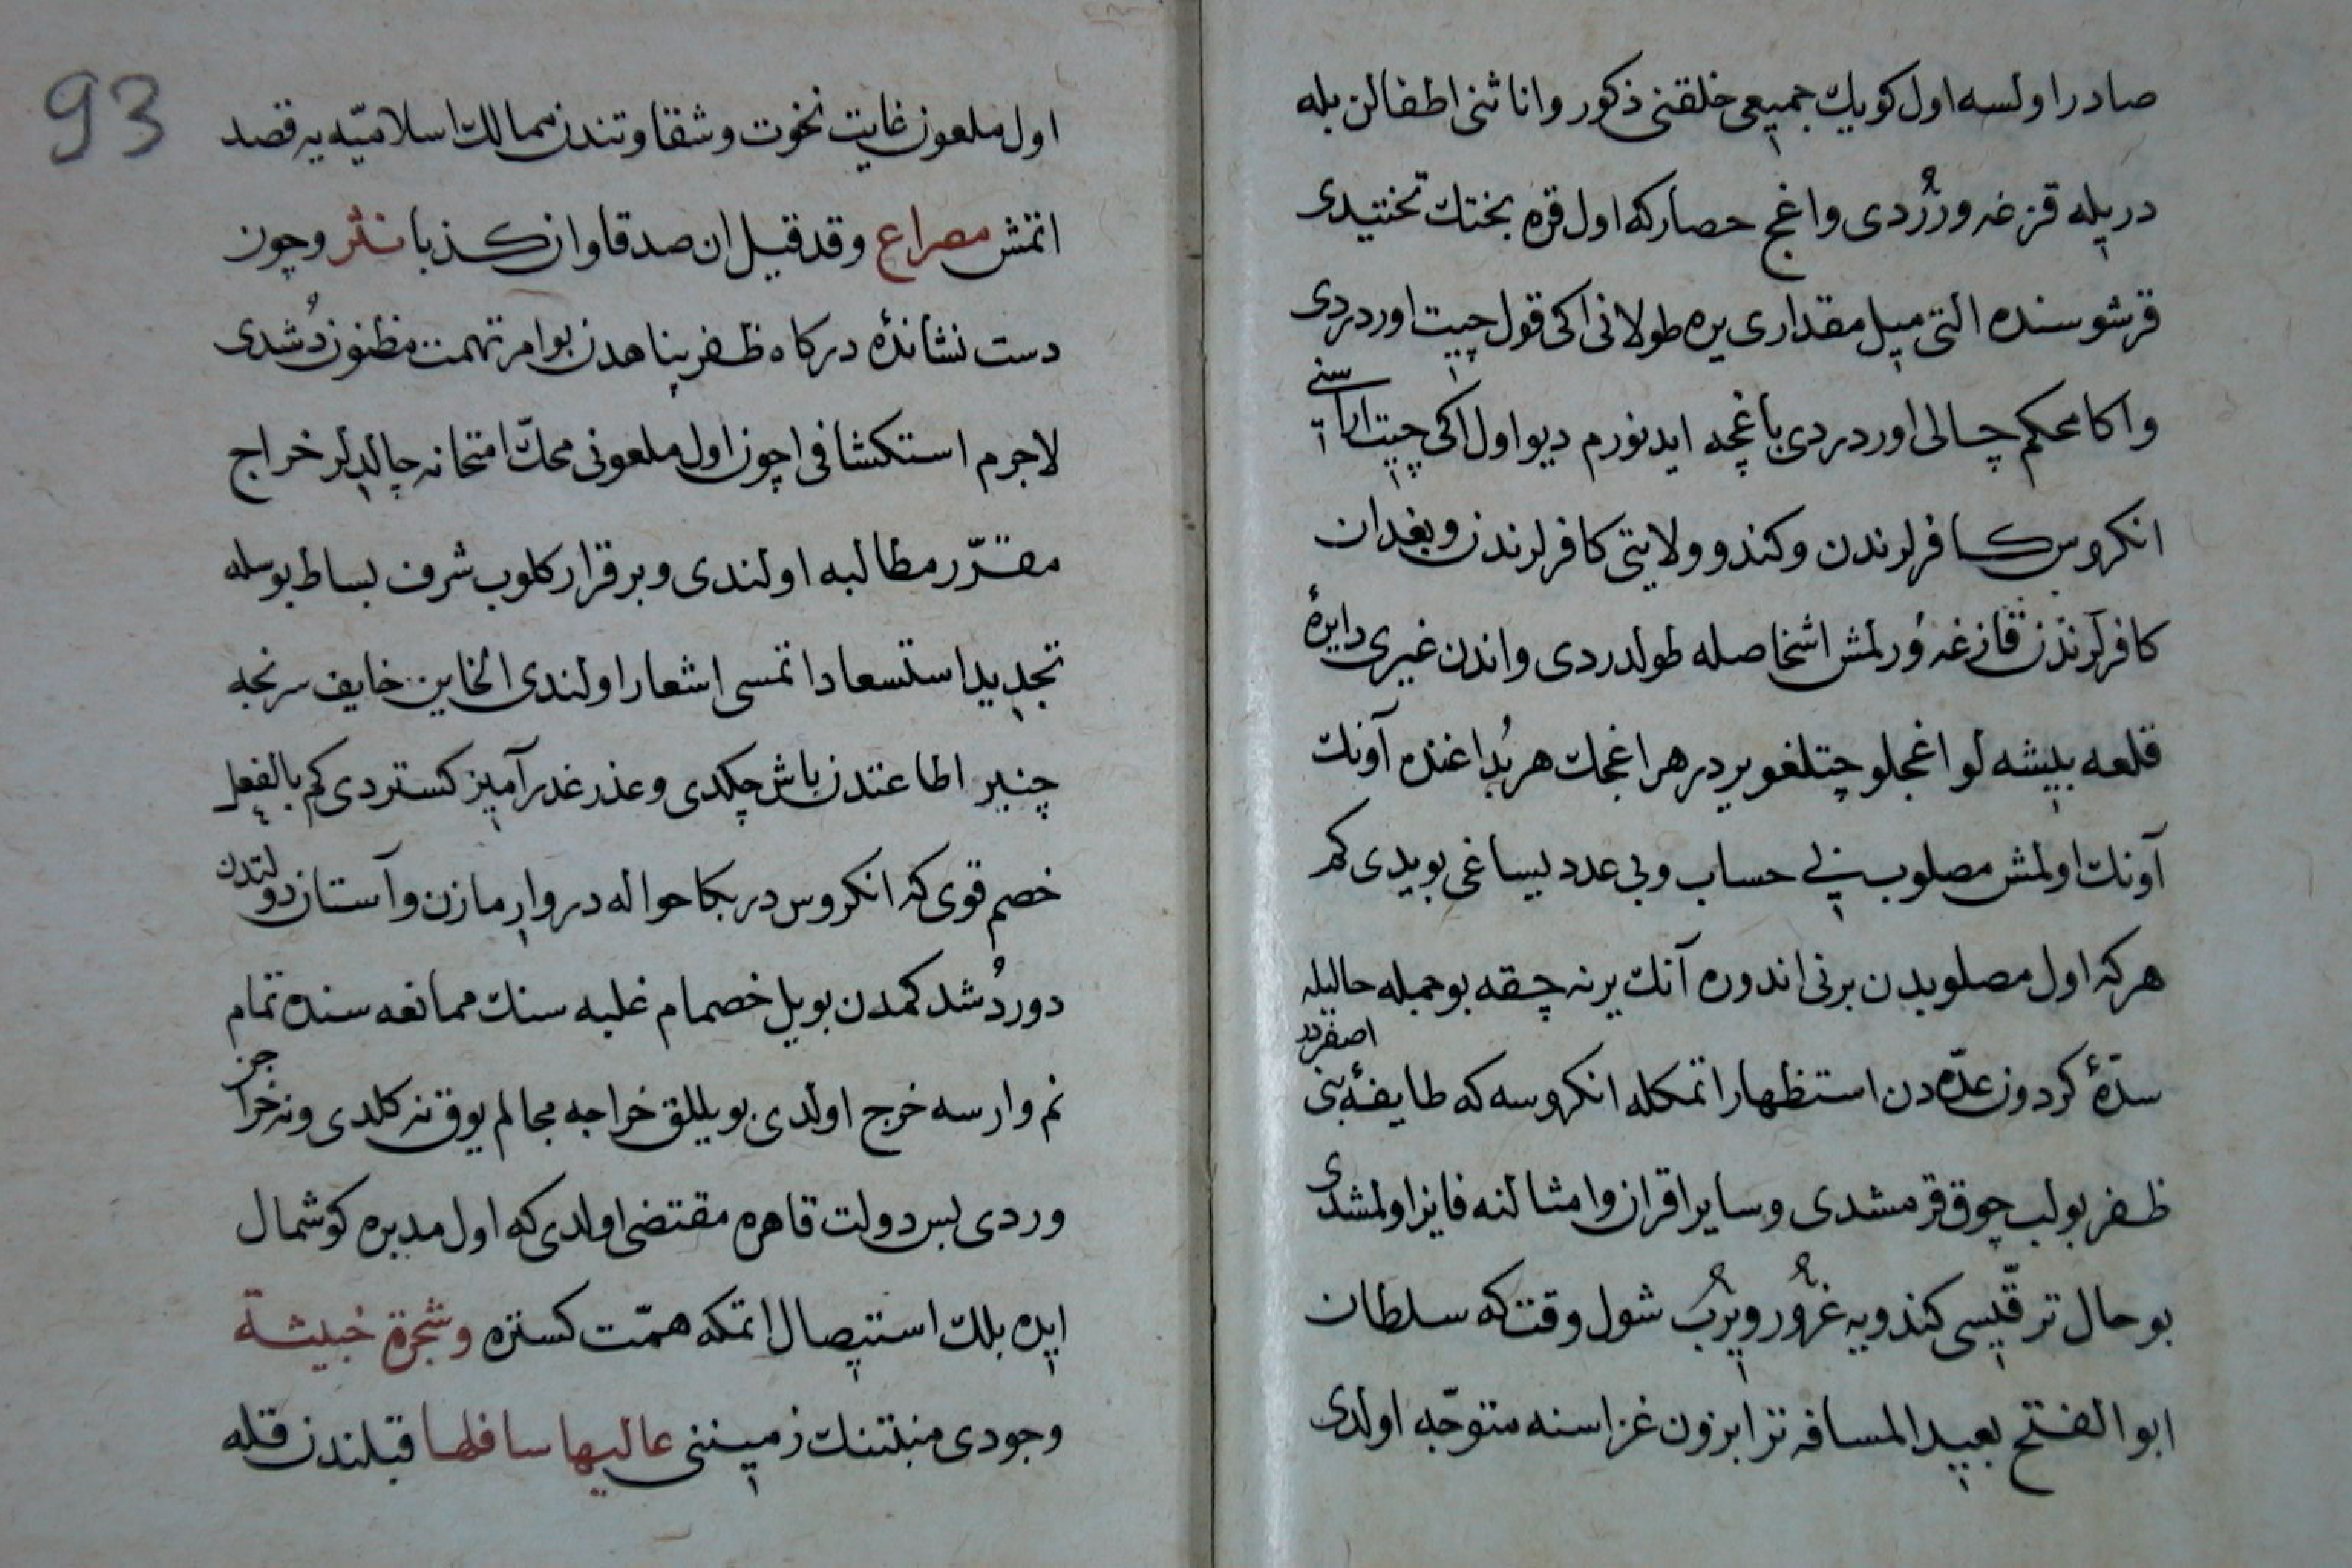 صادر اولسه اول كويك جميعى خلقنى ذكور واناثنى اطفالن بله
دريله قزغه وررُدى واغج حصاركه اول قره بختك تختيدى
قرشوسنده التى ميل مقدارى يره طولانى اكى قول چيت اوردردى
واكا محكم چالى اوردردى باغچه ايدنورم ديو اول اكى چيت اراسنى
انكروس كافرلرندن وكندو ولايتى كافرلرندن وبغدان
كافرلرندن قازغه وُرلمش اشخاصله طولدردى واندن غيرى دايرهٔ
قلعه بيشه لو اغجلو چتلغو يردر هر اغجك هر بُداغنده آونك
آونك اولمش مصلوب بى حساب وبى عدد يساغى بويدى كم
هركه اول مصلوبدن برنى اندوره آنك يرنه چقه بو جمله حاليله
سدّهٔ كردون عدّه دن استظهار اتمكله انكروسه كه طايفهٔ بنى اصفردر
ظفر بولب چوق قرمشدى وساير اقران وامثالنه فايز اولمشدى
بو حال ترقّيسى كندويه غرُور ويرُب شول وقت كه سلطان
ابو الفتح بعيد المسافه ترابزون غزاسنه متوجّه اولدى
93
اول ملعون غايت نخوت وشقاوتندن ممالك اسلاميّه يه قصد
اتمش مصراع وقد قيل ان صدقا وان كذبا نثر وچون
دست نشاندهٔ دركاه ظفر پناهدن بو امر تهمت مظنون دُشدى
لاجرم استكشافى اچون اول ملعونى محكّ امتحانه چالديلر خراج
مقرّر مطالبه اولندى وبر قرار كلوب شرف بساط بوسله
تجديد استسعاد اتمسى اشعار اولندى الخاين خايف سرنجه
چنبر اطاعتدن باش چكدى وعذر غدر آميز كستردى كم بالفعل
خصم قوى كه انكروس در بكا حواله در وارمازن وآستان دولتدن
دور دُشدكمدن بو ييل خصمام غلبه سنك ممانعه سنده تمام
نم وارسه خرج اولدى بو ييللق خراجه مجالم يوق نه كلدى ونه خراجن
وردى بس دولت قاهره مقتضى اولدى كه اول مدبره كوشمال
ايده بلك استيصال اتمكه همّت كستره وشجرة خبيثة
وجودى منبتنك زمينى عاليها سافلها قبلندن قله